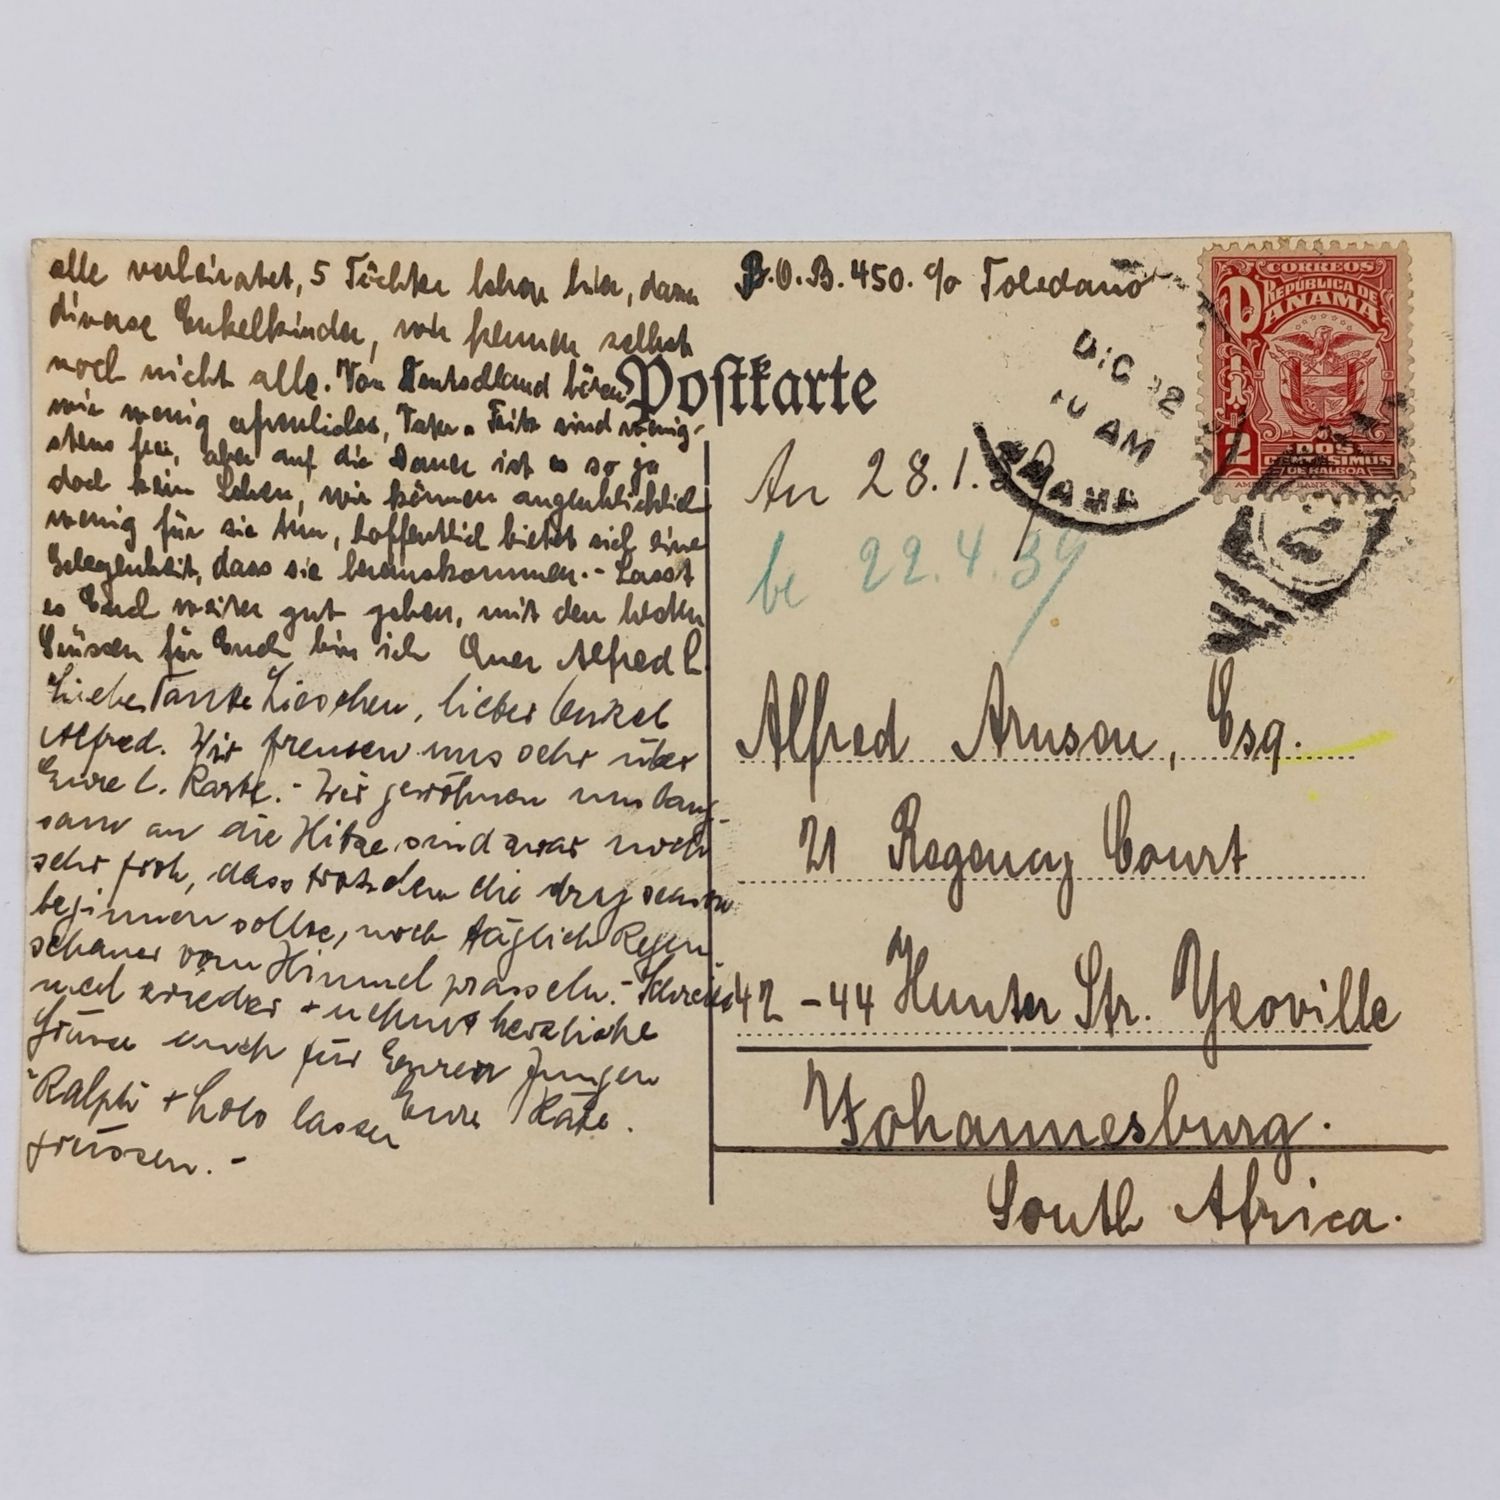 alle verheiratet, 5 Töchter leben hier, dazu
diverse Enkelkinder, wir kennen selbst
noch nicht alle. Von Deutschland hören
wir wenig erfreuliches, Vater u. Fritz sind wenig-
stens frei, aber auf die Dauer ist es so ja
doch kein Leben, wir können augenblicklich
wenig für sie tun, hoffentlich bietet sich eine
Gelegenheit, dass sie herauskommen. - Lasst
es Euch weiter gut gehen, mit den besten
Grüssen für Euch bin ich Euer Alfred L.
Liebe Tante Lieschen, lieber Onkel
Alfred. Wir freuten uns sehr über
Eure l. Karte. - Wir gewöhnen uns lang-
sam an die Hitze, sind zwar noch
sehr froh, dass trotzdem die dry season
beginnen sollte, noch täglich Regen-
schauer vom Himmel prasseln. - Schreibt
mal wieder + nehmt herzliche
Grüsse auch für Euren Jungen
Eure Käte.
Ralph + Lolo lassen
grüssen. -
P.O.B. 450. c/o Toledano
Postkarte
An 28.1.39
be 22.4.39
Alfred Aruson, Esq.
21 Regency Court
42 - 44 Hunter Str. Yeoville
Johannesburg.
South Africa.
DIC
AM
PANAMA
CORREOS
REPÚBLICA DE
PANAMA
2
DOS
CENTESIMOS
DE BALBOA